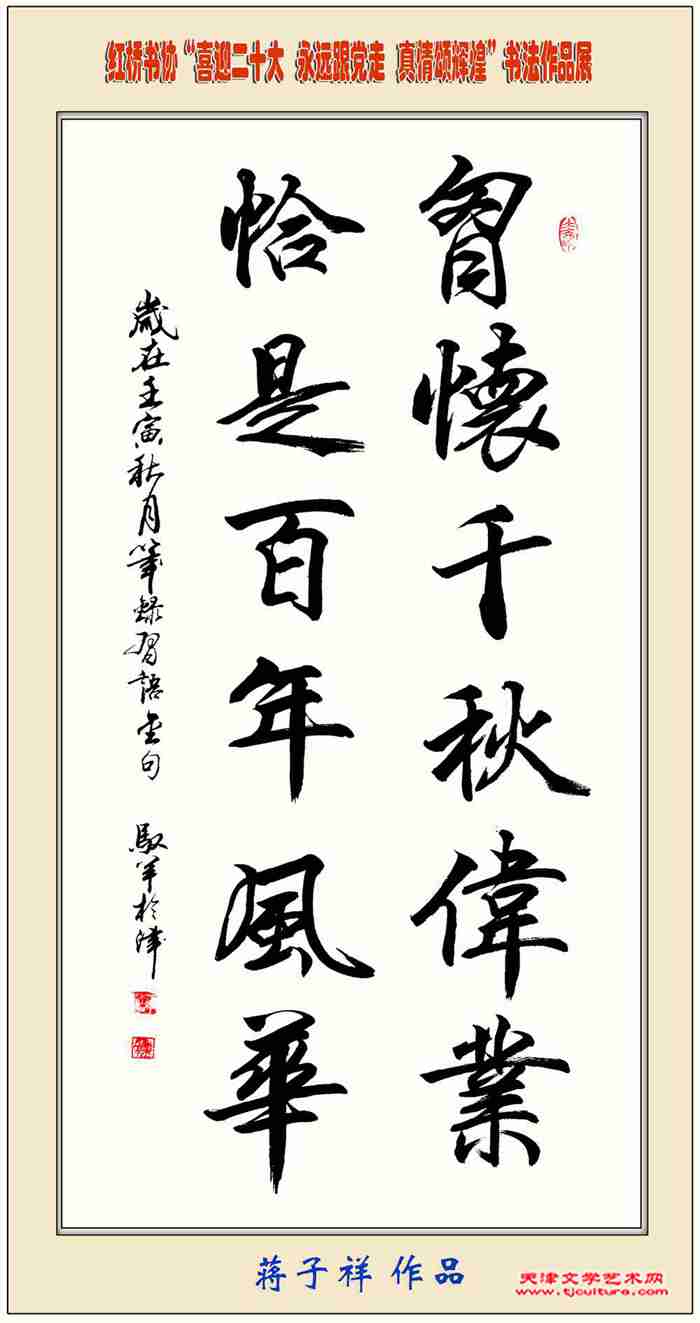 红桥书协“喜迎二十大 永远跟党走 真情颂辉煌”书法作品展
胷懷千秋偉業
恰是百年風華
歲在壬寅秋月筆錄習語金句
馭羊於津
蒋子祥作品
天津文学艺术网
www.tjculture.com